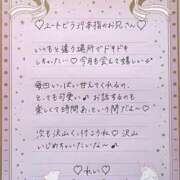 ♡ユートピア 本指のお兄さん♡
いつもと違う場所でドキドキ
しちゃった♡今月も会えて嬉しい
毎回いっぱい甘えてくれるの、
とっても可愛い♪お話するのも
楽しくて時間あっという間だよー♡
次も沢山くっけてうれ♡沢山
いじめちゃいたいな〜♪
♡れい♡